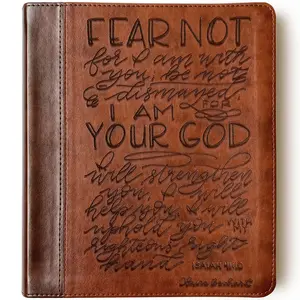 FEAR NOT
for I am with
you, be not
dismayed FOR
I AM
YOUR GOD
I will strengthen
you, I will
help you, I will
uphold you WITH MY
righteous right
hand
ISAIAH 41:10